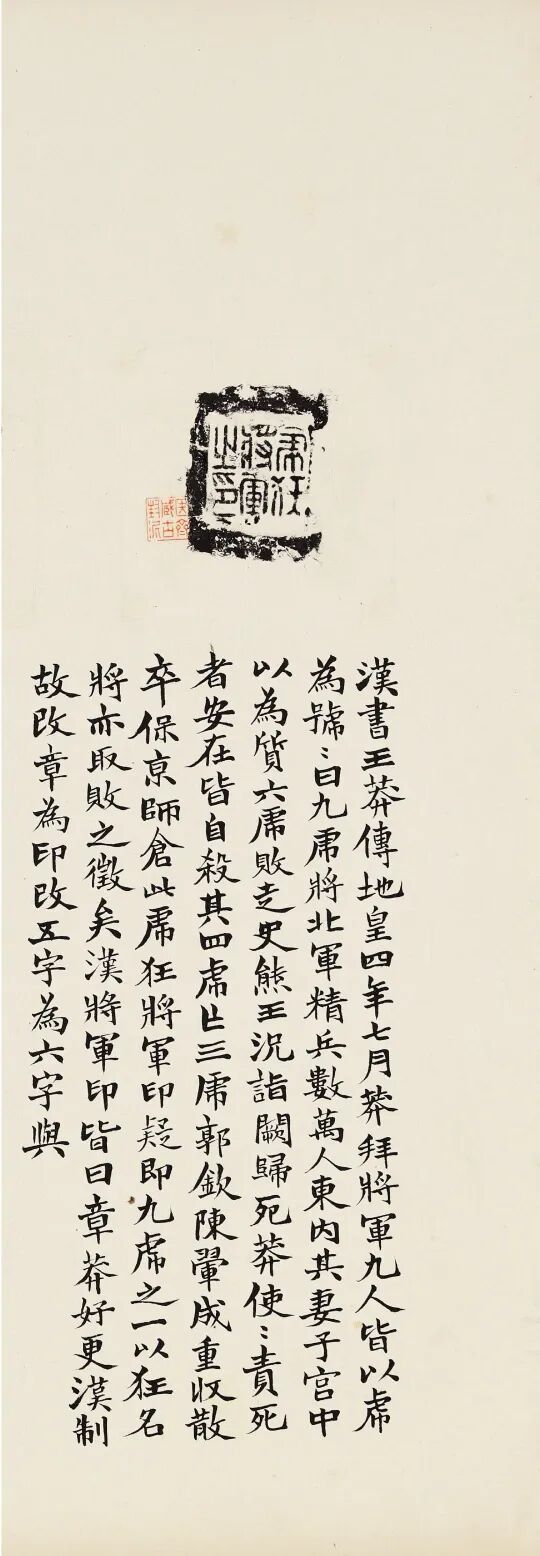 虎狂
將軍
之印
古
封泥
漢書王莽傳地皇四年七月莽拜將軍九人皆以虎
為號〻曰九虎將北軍精兵數萬人東內其妻子宮中
以為質六虎敗走史熊王況詣闕歸死莽使〻責死
者安在皆自殺其四虎亡三虎郭欽陳翬成重收散
卒保京師倉此虎狂將軍印疑即九虎之一以狂名
將亦取敗之徵矣漢將軍印皆曰章莽好更漢制
故改章為印改五字為六字與